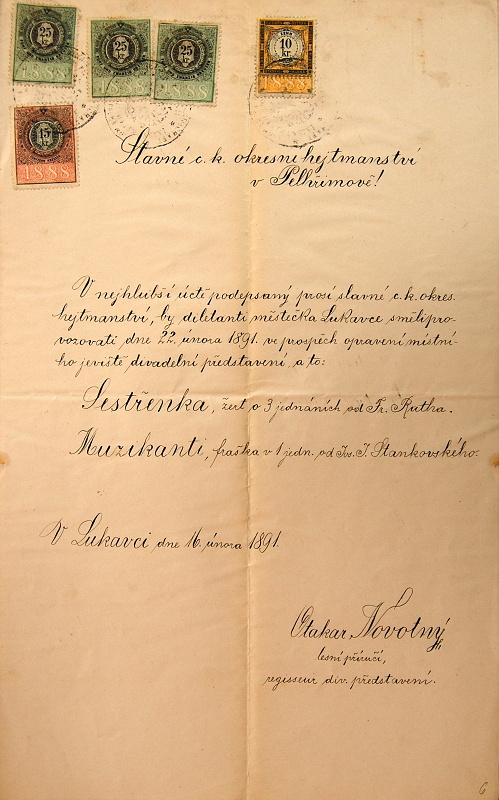 25
25
25
10
kr.
1888
1888
1888
15
1888
Slavné c. k. okresní hejtmanství
v Pelhřimově!
V nejhlubší úctě podepsaný prosí slavné c. k. okres.
hejtmanství, by diletanti městečka Lukavce směli pro-
vozovati dne 22. února 1891. ve prospěch opravení místní-
ho jeviště divadelní představení, a to:
Sestřenka, žert o 3 jednáních od Fr. Rutha.
Muzikanti, fraška v 1 jedn. od Jos. J. Stankovského.
V Lukavci dne 16. února 1891.
Otakar Novotný,
lesní příručí,
regisseur div. představení.
6